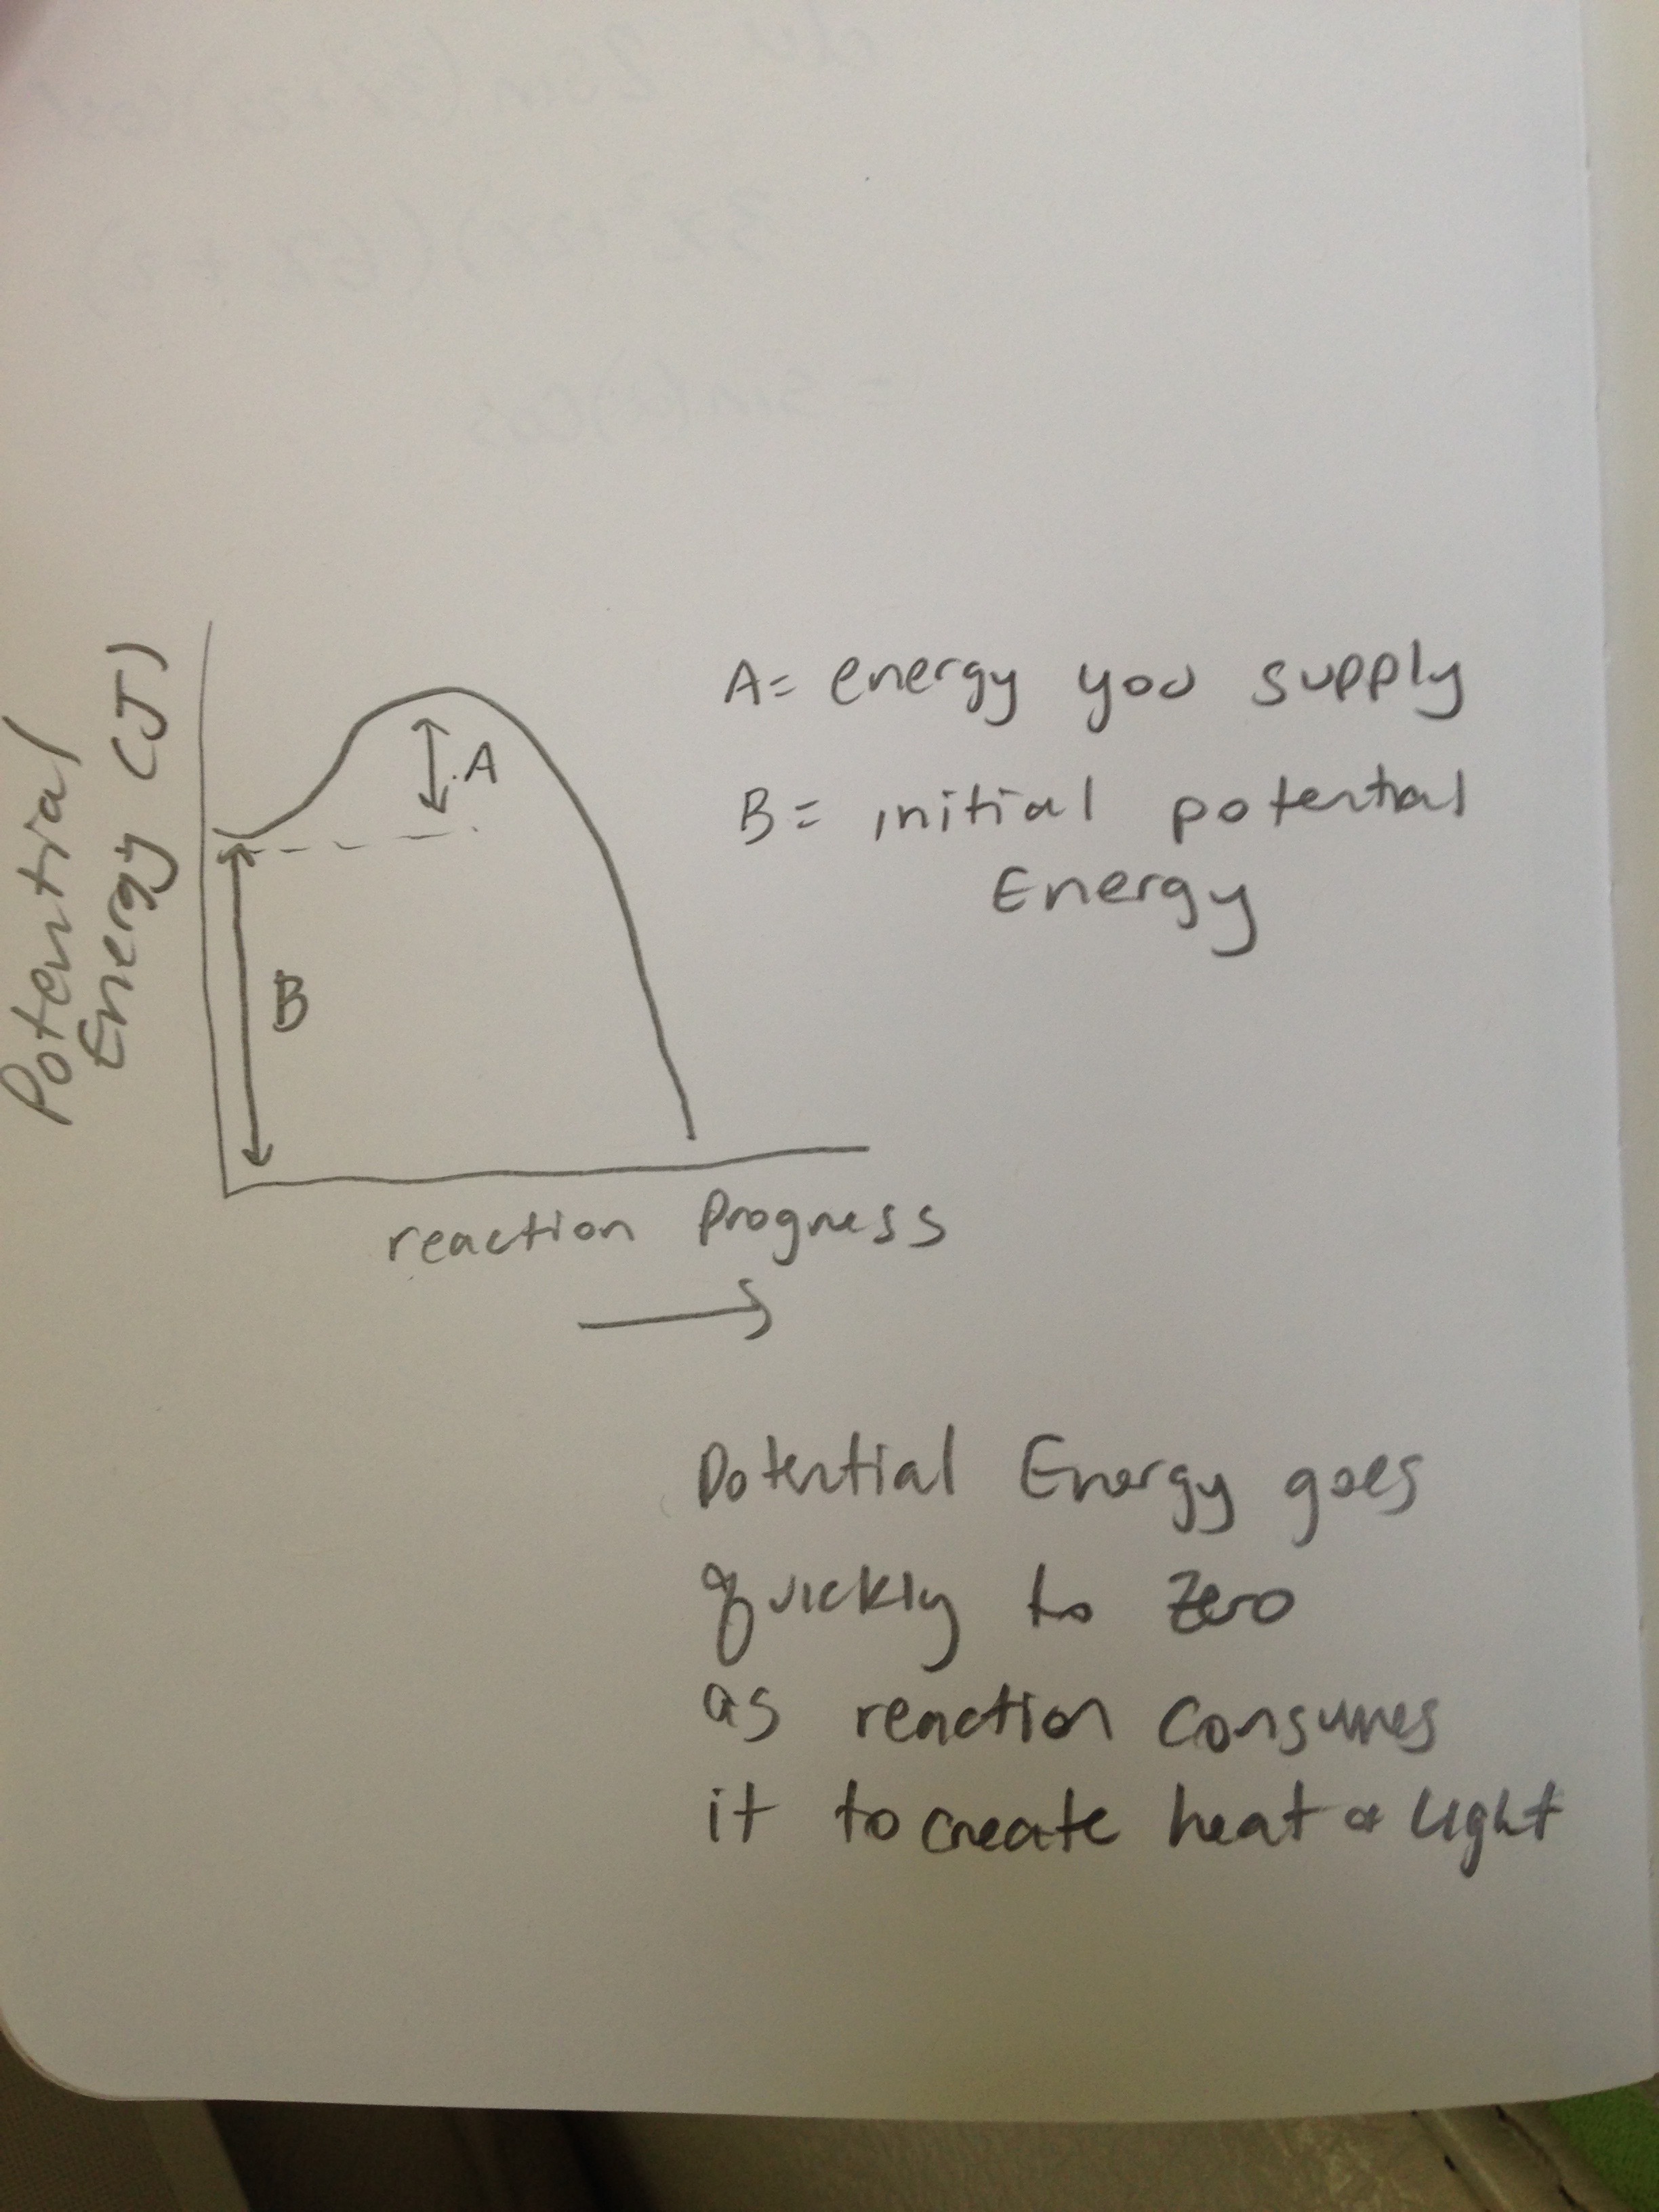 Potential
Energy (J)
A
B
reaction Progress
A= energy you supply
B= initial potential
Energy
Potential Energy goes
quickly to zero
as reaction consumes
it to create heat & light